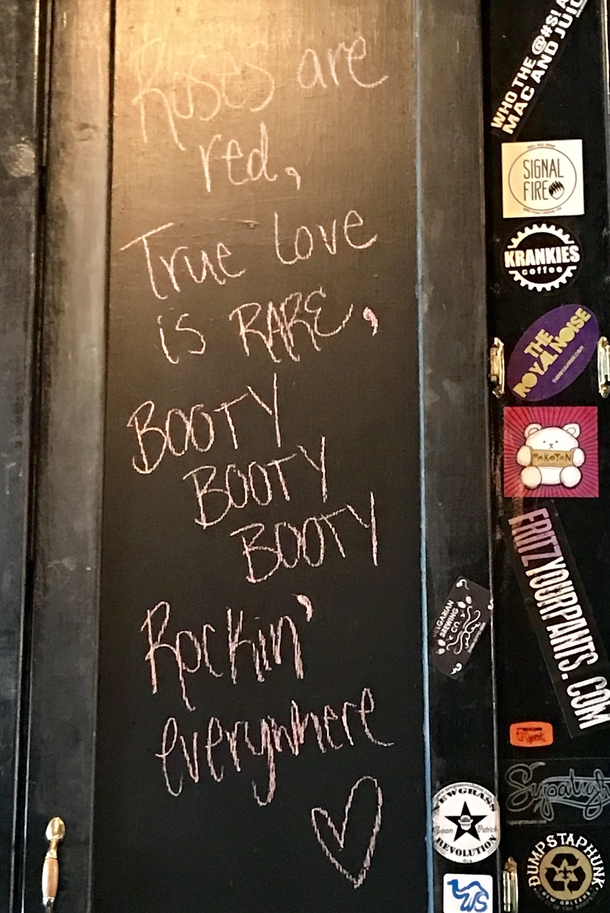 Roses are
red,
True love
is RARE,
BOOTY
BOOTY
BOOTY
Rockin'
everywhere
WHO THE @#$! A
MAC AND JUIC
SIGNAL
FIRE
KRANKIES
coffee
THE
ROYAL NOISE
MAKOTON
FRITZYOURPANTS.COM
BREWING
CO
NEWGRASS
REVOLUTION
DUMPSTAPHUNK
NEW ORLEANS